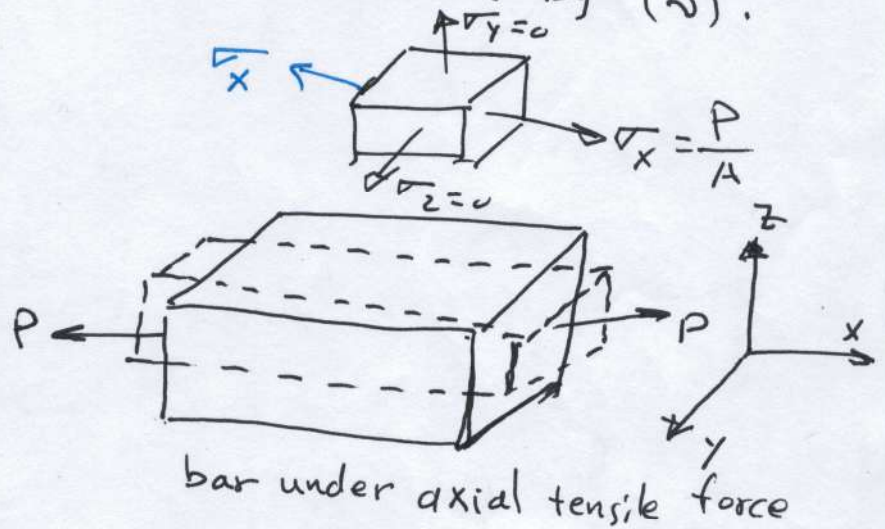 (ν).
σy = 0
σx
σx = P/A
σz = 0
Z
P
P
X
Y
bar under axial tensile force